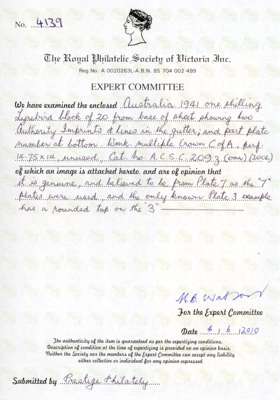 No. 4139
The Royal Philatelic Society of Victoria Inc.
Reg No: A 0020263L-A.B.N. 85 704 002 499
EXPERT COMMITTEE
We have examined the enclosed Australia 1941 one shilling
Lyrebird block of 20 from base of sheet showing two
Authority Imprints & lines in the gutter, and part plate
number at bottom. Wmk. multiple Crown C of A, perf
14.75 x 14, unused, Cat. No A.C.S.C. 209 z
of which an image is attached hereto, and are of opinion that
it is genuine, and believed to be from Plate 7 as the "7"
plates were used, and the only known Plate 3 example
has a rounded top on the "3"
For the Expert Committee
Date 4 / 6 / 2010
The authenticity of the item is guaranteed as per the expertising conditions.
Description of condition at the time of expertising is provided on an opinion basis.
Neither the Society nor the members of the Expert Committee can accept any liability
either collective or individual for any opinion expressed
Submitted by Prestige Philately